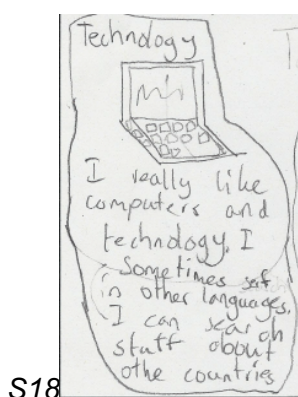 Technology
I really like
computers and
technology. I
Sometimes
in other languages.
I can search
stuff about
othe countries
S18